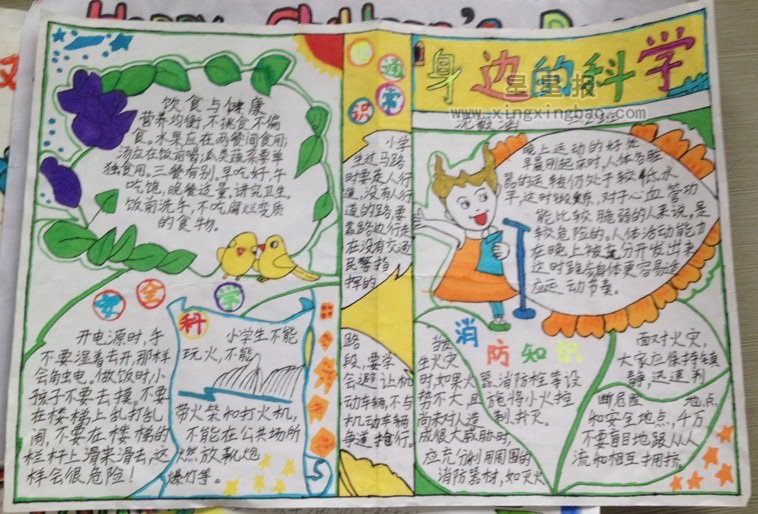 Happy Children's
身边的科学
星星报
www.xingxingbao.com
饮食与健康
营养均衡,不挑食不偏
食。水果应在两餐间食用,
汤应在饭前喝,瓜类蔬菜要单
独食用。三餐有别。早吃好,午
吃饱,晚餐适量。讲究卫生。
饭前洗手,不吃腐烂变质
的食物。
安全学
科
开电源时,手
不要湿着去开,那样
会触电。做饭时,小
孩子不要去摸。不要
在楼梯上乱打乱
闹,不要在楼梯的
栏杆上滑来滑去,这
样会很危险!
小学生不能
玩火,不能
带火柴和打火机,
不能在公共场所
燃放靴炮
爆灯等。
通常识
小学
生过马路
时要走人行
道,没有人行
道的路要
靠路边行走
在没有交通
民警指
挥的
路
段,要学
会避让机
动车辆,不与
机动车辆
争道抢行。
晚上运动的好处
早晨刚起床时,人体各脏
器的运转仍处于较低水
平,这时锻炼,对于心血管功
能比较脆弱的人来说,是
较危险的。人体活动能力
在晚上被充分开发出来
这时跑步身体更容易适
应运动节奏。
消防知识
当发
生火灾
时如果火
势不大,且
尚未对人造
成很大威胁时,
应充分利用周围的
消防器材,如灭火
器、消防栓等设
施将小火控
制、扑灭。
面对火灾,
大家应保持镇
静,迅速判
断危险地点
和安全地点,千万
不要盲目地跟从人
流和相互拥挤。